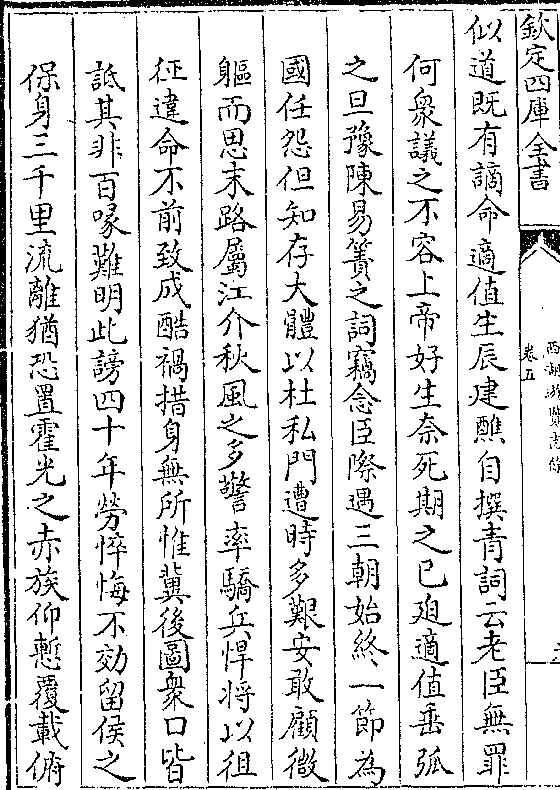 欽定四庫全書
西湖遊覽志餘
卷五
似道既有謫命適值生辰建醮自撰青詞云老臣無罪
何衆議之不容上帝好生奈死期之已廹適值垂弧
之旦豫陳易簀之詞竊念臣際遇三朝始終一節為
國任怨但知存大體以杜私門遭時多艱安敢顧微
軀而思末路屬江介秋風之多警率驕兵悍將以徂
征違命不前致成酷禍措身無所惟冀後圖衆口皆
詆其非百喙難明此謗四十年勞悴悔不効留侯之
保身三千里流離猶恐置霍光之赤族仰慙覆載俯